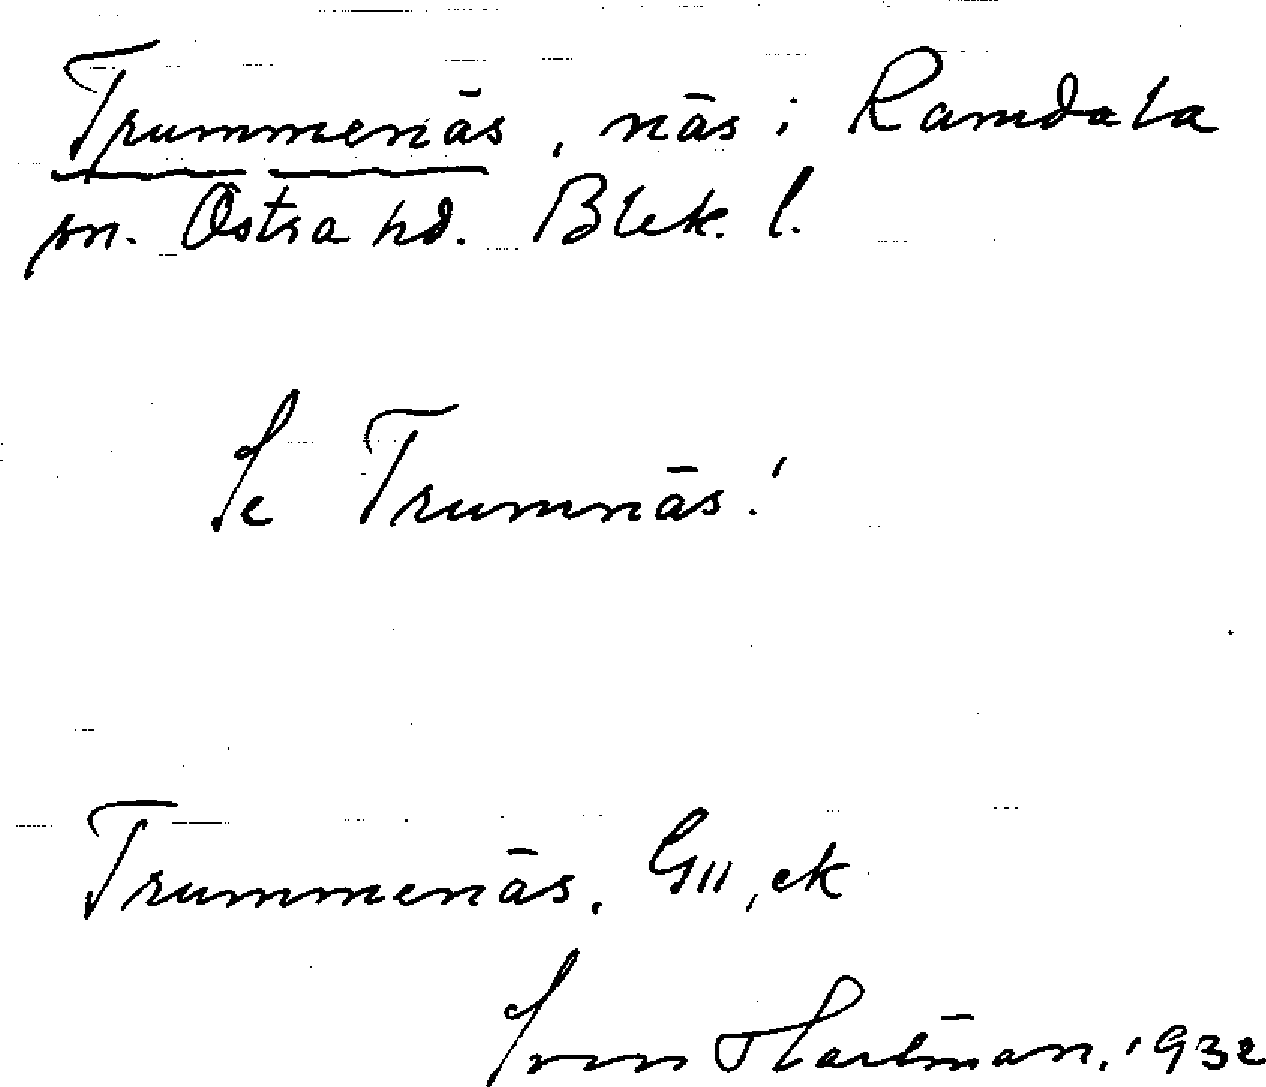 Trummenäs, näs i Ramdala
sn. Östra hd. Blek. l.
Se Trumnäs!
Trummenäs. GII, ek
Sven Hartman. 1932